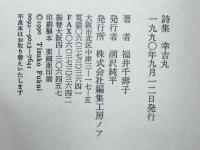 詩集 幸吉丸
一九九〇年九月一二日発行
著 者 福井千壽子
発行者 涸沢純平
発行所 株式会社編集工房ノア
大阪市北区中津三―一七―五
電話〇六(三七三)三六四一
FAX〇六(三七三)三六四二
振替大阪四―三〇六四五七
印刷製本 亜細亜印刷
©1990 Tizuko Fukui
不良本はお取り替えいたします